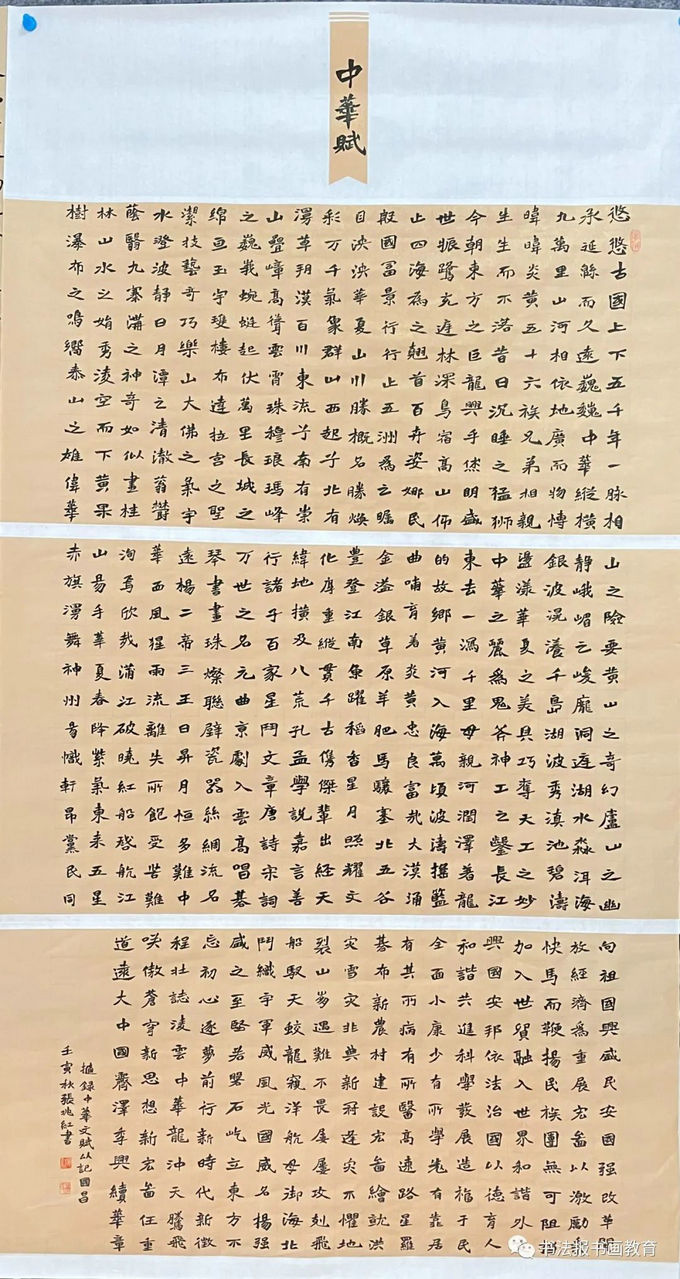 中華賦
悠悠古國上下五千年一脉相
承延綿而久遠巍巍中華縱橫
九萬里山河相依地廣而物博
暐暐炎黄五十六族兄弟相親
生生而不落昔日沉睡之猛狮
今朝東方之巨龍興乎倐明盛
世振鷺充遅林深鳥宿高山仰
止四海為之翹首百卉姿娜民
殷國冨景行行止五洲為之矚
目泱泱華夏山川勝概名勝焕
彩万千氣象群山西起于北有
漠草朔漠百川東流于南有崇
山疊嶂高聳雲霄珠穆琅瑪峰
之巍峩蜿蜒起伏萬里長城之
綿亘玉宇瓊樓布達拉宫之聖
潔技藝奇巧樂山大佛之氣宇
水澄波静日月潭之清澈蓊欝
蔭翳九寨溝之神奇如似畫桂
林山水之娟秀凌空而下黄果
樹瀑布之鳴嚮泰山之雄偉華
山之險要黄山之奇幻廬山之幽
静峨嵋之峻龐洞迋湖水淼洱海
銀波滉瀁千島湖波秀滇池碧濤
盪漾華夏之美具巧奪天工之妙
中華之麗為鬼斧神工之鑿長江
東去一瀉千里母親河潤澤着龍
的故鄉黄河入海萬頃波濤摇籃
曲哺育着炎黄忠良富哉大漠涌
金溢銀草原羊肥馬驤塞北五谷
豐登江南魚躍稻香星月照耀文
化厚重縱貫千古儁傑輩出經天
緯地横及八荒孔孟學説嘉言善
行諸子百家星鬥文章唐詩宋詞
万世之名元曲京劇入雲高唱棊
琴書畫珠燦聯璧瓷器絲綢流名
遠楊二帝三王日昇月恒多難中
華西風猩雨流離失所飽受苦難
洵焉欣哉浦江破曉紅船殘航江
山易手華夏春降紫氣東来五星
赤旗漫舞神州音幟軒昂黨民同
向祖國興盛民安國强改革開
放經濟為重展宏啚以激勵
快馬而鞭揚民族團無可阻
加入世貿融入世界和諧外
興國安邦依法治國以德育人
和諧共進科學發展造福于民
全面小康少有所學老有靠居
有其所病有所醫高遠路星羅
棊布新農村建設宏啚繪就洪
灾雪灾非典新冠逢灾不懼地
裂山崩遇難不畏屡屡攻剋飛
船馭天蛟龍窺洋航母御海北
鬥織宇軍威風光國威名揚强
盛之至堅若磐石屹立東方不
忘初心逐夢前行新時代新徵
程壮誌凌雲中華龍沖天騰飛
咲傲蒼穹新思想新宏啚任重
道遠大中國霽澤季興續華章
摭録中華文賦以記國昌
壬寅秋張兆紅書
书法报书画教育